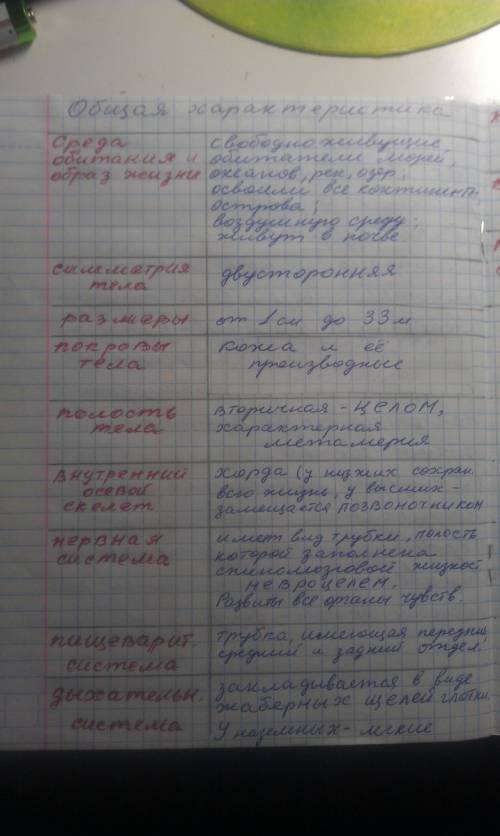 Общая характеристика
Среда
обитания и
образ жизни
свободноживущие,
обитатели морей,
океанов, рек, озёр.
освоили все континент.
острова;
воздушную среду;
живут в почве
симметрия
тела
двусторонняя
размеры
от 1 см до 33 м
покровы
тела
кожа и её
производные
полость
тела
вторичная - целом,
характерная
метамерия
внутренний
осевой
скелет
хорда (у низших сохран.
всю жизнь, у высших -
замещается позвоночником
нервная
система
имеет вид трубки, полость
которой заполнена
спинномозговой жидкост
невроцелем.
Развиты все органы чувств.
пищеварит.
система
трубка, имеющая передний
средний и задний отдел.
дыхательн.
система
закладывается в виде
жаберных щелей глотки
У наземных - легкие